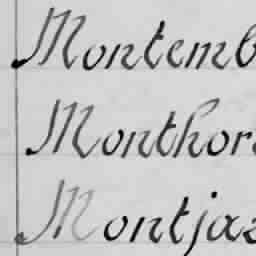 Montemb
Monthor
Montjaz